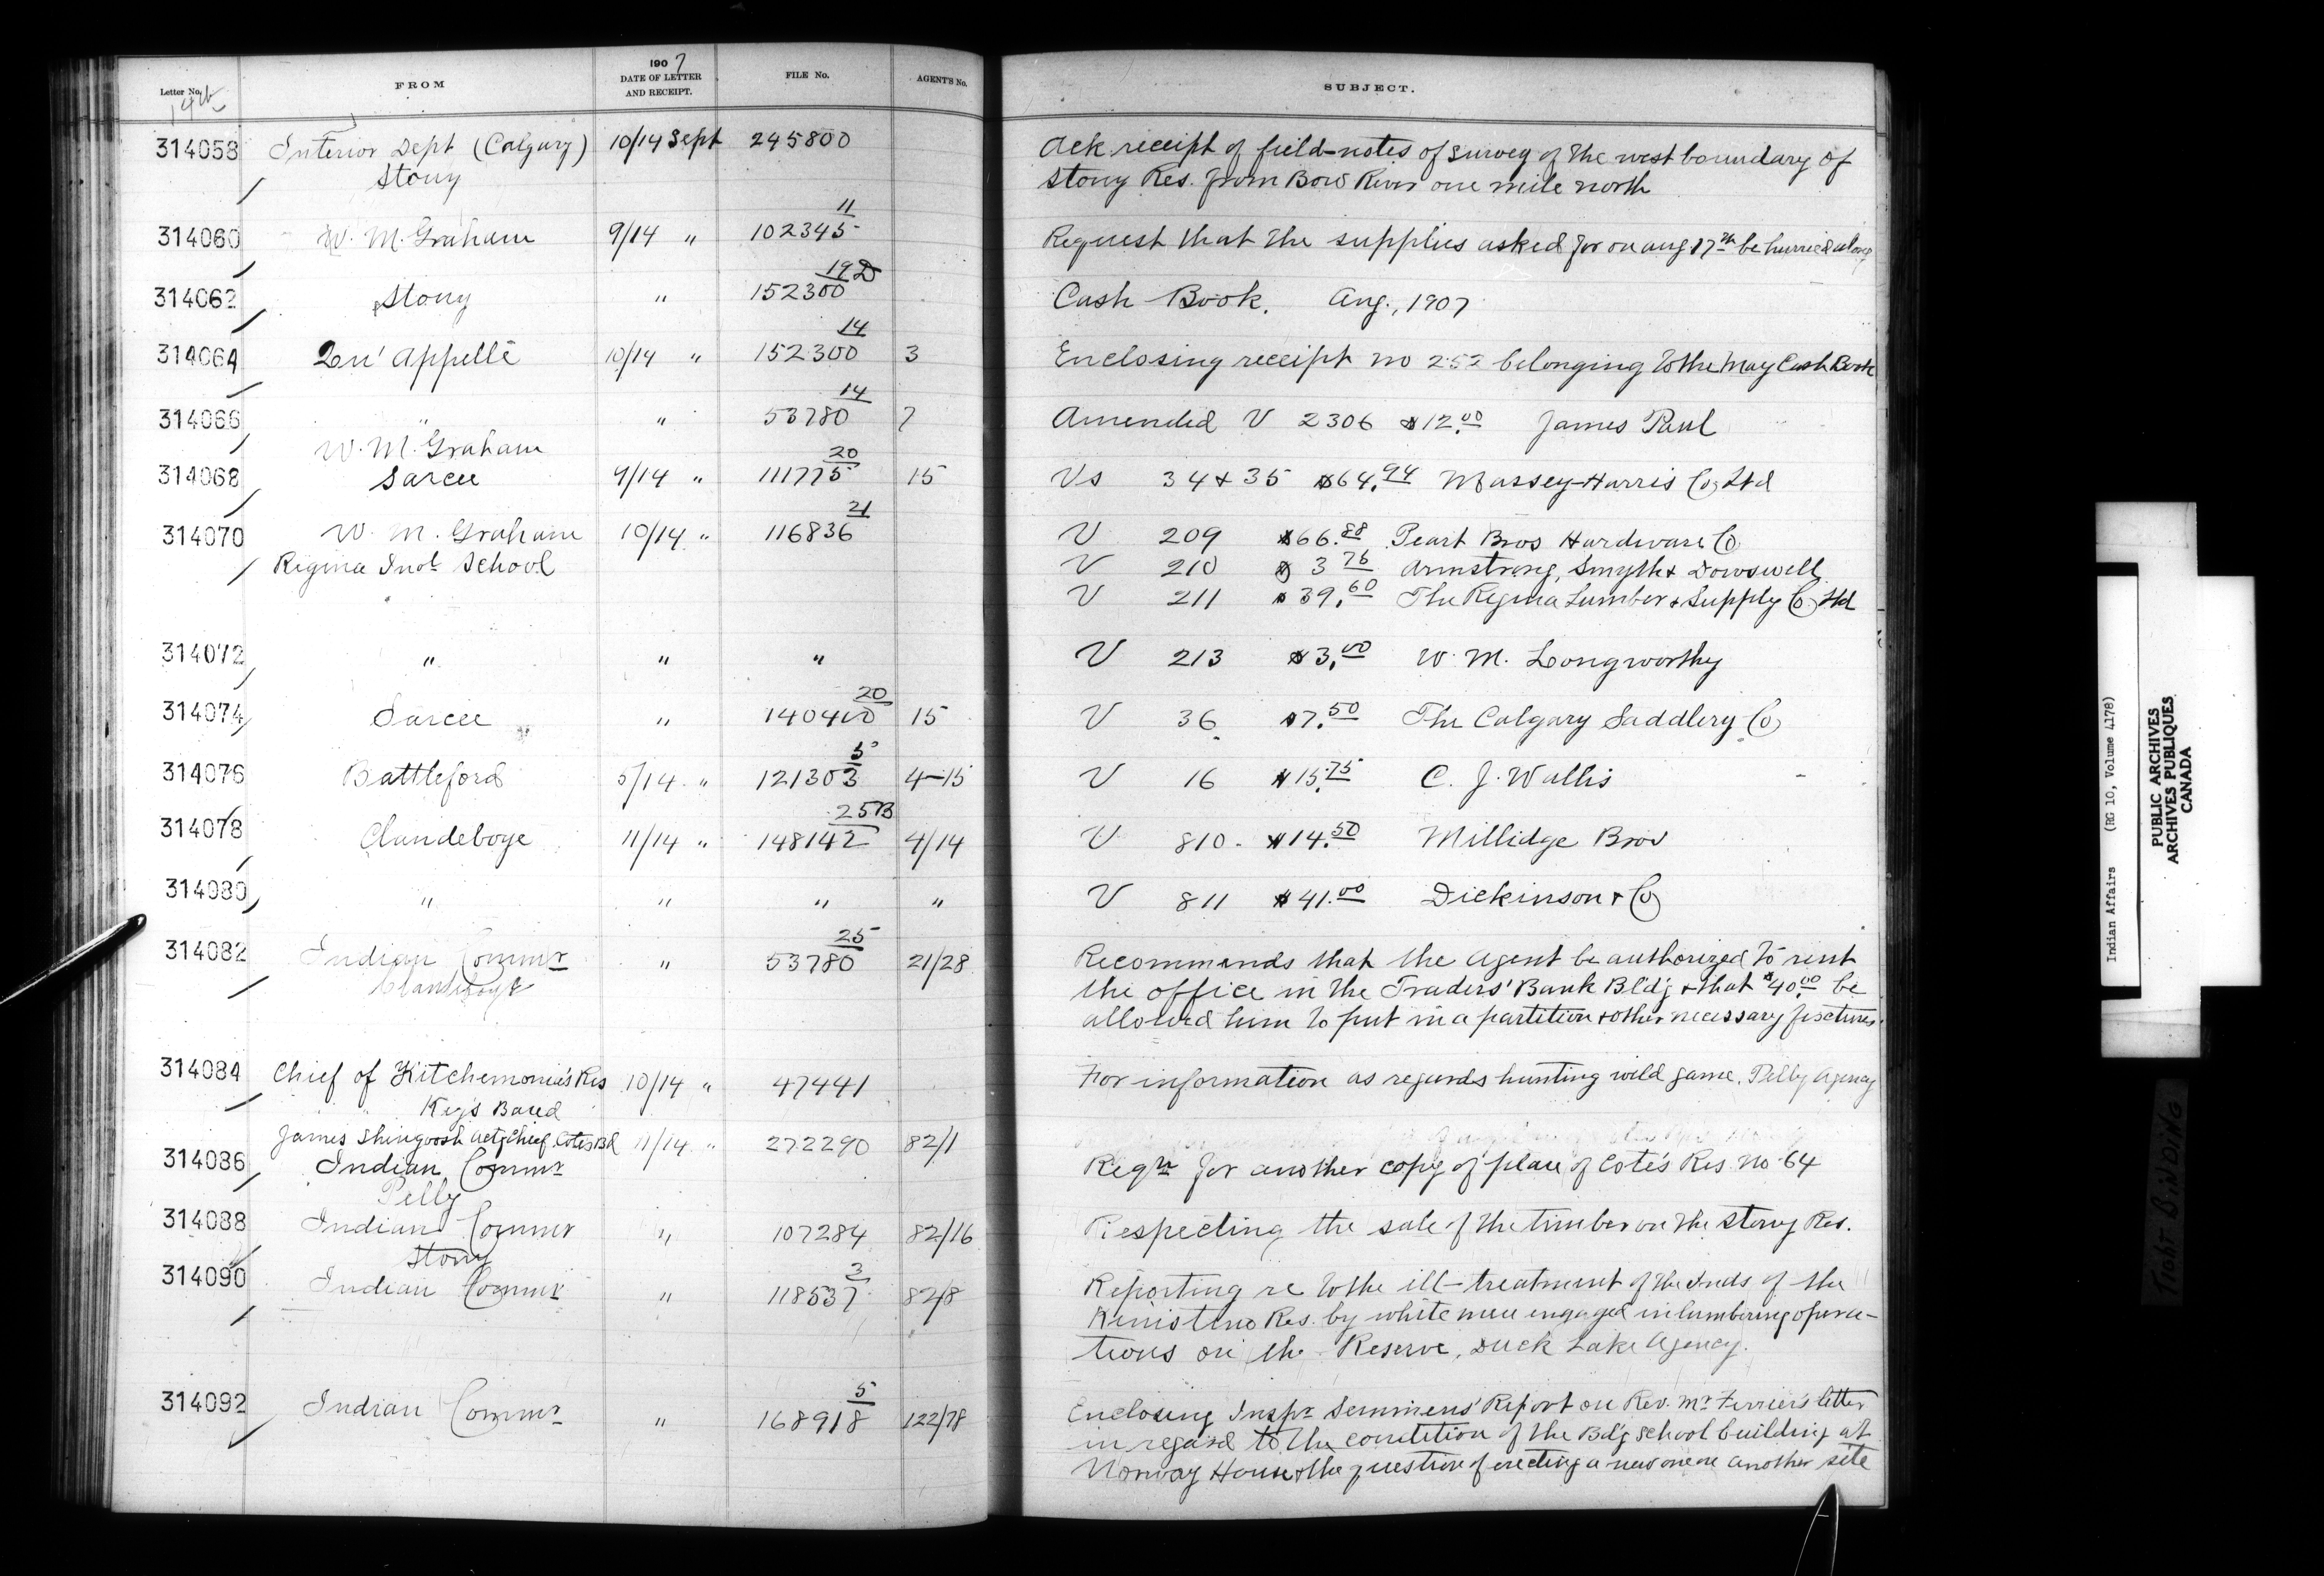 Letter No. FROM 1907 DATE OF LETTER AND RECEIPT. FILE No. AGENT'S No. SUBJECT.
14th
314058 Interior Dept (Calgary) 10/14 Sept 245800 Ack receipt of field-notes of survey of the west boundary of
Stony Stony Res. from Bow River one mile north
11
314060 W. M. Graham 9/14 " 102345 Request that the supplies asked for on Aug 17th be hurried along
19D
314062 Stony " 152300 Cash Book. Aug., 1907
14
314064 Qu'Appelle 10/14 " 152300 3 Enclosing receipt no 252 belonging to the May Cash Book
14
314066 " " 53780 7 Amended V 2306 $12.00 James Paul
W. M. Graham
20
314068 Sarcee 9/14 " 111775 15 Vs 34 & 35 $64.94 Massey-Harris Co Ltd
21
314070 W. M. Graham 10/14 " 116836 V 209 $66.88 Peart Bros Hardware Co
Regina Indl School V 210 $3.76 Armstrong, Smyth & Dowswell
V 211 $39.60 The Regina Lumber & Supply Co Ltd
314072 " " " V 213 $3.00 W. M. Longworthy
20
314074 Sarcee " 140400 15 V 36 $7.50 The Calgary Saddlery Co
5
314076 Battleford 5/14 " 121303 4-15 V 16 $15.75 C. J. Wallis
25B
314078 Clandeboye 11/14 " 148142 4/14 V 810 $14.50 Millidge Bros
314080 " " " " V 811 $41.00 Dickinson & Co
25
314082 Indian Commr " 53780 21/28 Recommends that the Agent be authorized to rent
Clandeboye the office in the Traders' Bank Bldg & that $40.00 be
allowed him to put in a partition & other necessary fixtures.
314084 Chief of Kitchemonia's Res 10/14 " 47441 For information as regards hunting wild game. Pelly Agency
" Key's Band
James Shingoosh Actg Chief Cotes Bd 11/14 " 272290 82/1
314086 Indian Commr Reqn for another copy of plan of Cote's Res. no 64
Pelly
314088 Indian Commr " 107284 82/16 Respecting the sale of the timber on the Stony Res.
Stony
3
314090 Indian Commr " 118537 82/8 Reporting re to the ill-treatment of the Inds of the
Kinistino Res. by white men engaged in lumbering opera-
tions on the Reserve, Duck Lake Agency.
5
314092 Indian Commr " 168918 122/78 Enclosing Inspr Semmens' Report on Rev. Mr Ferrier's letter
in regard to the condition of the Bdg School building at
Norway House & the question of erecting a new one on another site
Indian Affairs (RG 10, Volume 4178)
PUBLIC ARCHIVES
ARCHIVES PUBLIQUES
CANADA
TIGHT BINDING